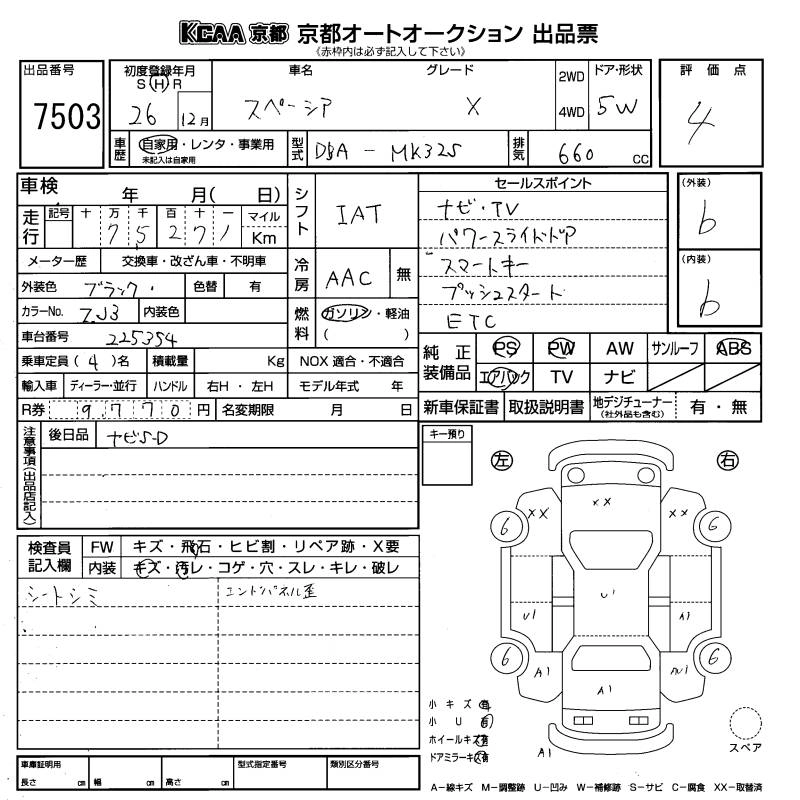 KCAA 京都 京都オートオークション 出品票
《赤枠内は必ず記入して下さい》
出品番号
7503
初度登録年月
S H R
26 12月
車名
スペーシア
グレード
X
2WD
4WD
ドア・形状
5W
評価点
4
車歴
自家用・レンタ・事業用
未記入は自家用
型式
DBA - MK32S
排気
660 cc
車検 年 月( 日)
走行
記号 十 万 千 百 十 一 マイル
7 5 2 7 1 Km
メーター歴 交換車・改ざん車・不明車
外装色 ブラック 色替 有
カラーNo. ZJ3 内装色
車台番号 225354
乗車定員(4)名 積載量 Kg
輸入車 ディーラー・並行 ハンドル 右H・左H
R券 9770円 名変期限 月 日
シフト IAT
冷房 AAC 無
燃料 ガソリン・軽油
( )
NOX 適合・不適合
モデル年式 年
セールスポイント
ナビ・TV
パワースライドドア
スマートキー
プッシュスタート
ETC
(外装)
b
(内装)
b
純正装備品
PS PW AW サンルーフ ABS
エアバック TV ナビ
新車保証書 取扱説明書 地デジチューナー 有・無
(社外品も含む)
注意事項(出品店記入)
後日品 ナビS-D
キー預り
検査員記入欄
FW キズ・飛石・ヒビ割・リペア跡・X要
内装 キズ・汚レ・コゲ・穴・スレ・キレ・破レ
シートシミ
エンドパネル歪
左 右
XX XX XX
6 6
U1
U1 A1
6 6
A1 A1
A1
小キズ 有
小U 有
ホイールキズ 有
ドアミラーキズ 有
スペア
車庫証明用
長さ cm 幅 cm 高さ cm
型式指定番号
類別区分番号
A−線キズ M−調整跡 U−凹み W−補修跡 S−サビ C−腐食 XX−取替済